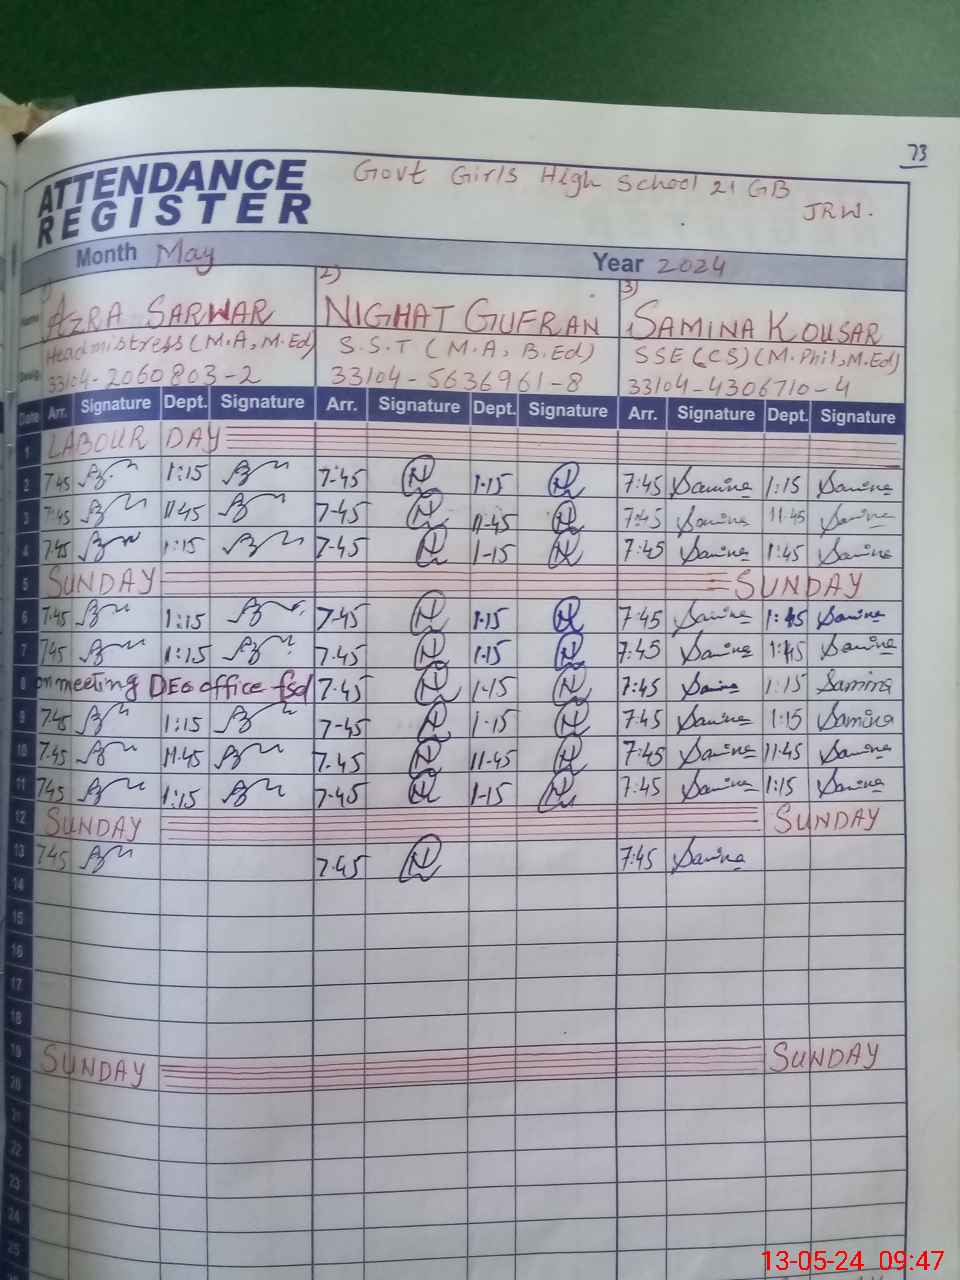 73
ATTENDANCE REGISTER
Govt Girls High School 21 GB
JRW.
Month May Year 2024
1) 2) 3)
Name AZRA SARWAR NIGHAT GUFRAN SAMINA KOUSAR
Headmistress (M.A, M.Ed) S.S.T (M.A, B.Ed) SSE (CS) (M.Phil, M.Ed)
33104-2060803-2 33104-5636961-8 33104-4306710-4
Date Arr. Signature Dept. Signature Arr. Signature Dept. Signature Arr. Signature Dept. Signature
1 LABOUR DAY
2 7:45 1:15 7-45 N 1-15 N 7:45 Samina 1:15 Samina
3 7:45 11:45 7-45 N 11-45 N 7:45 Samina 11:45 Samina
4 7:45 1:15 7-45 N 1-15 N 7:45 Samina 1:45 Samina
5 SUNDAY SUNDAY
6 7:45 1:15 7-45 N 1-15 N 7:45 Samina 1:45 Samina
7 7:45 1:15 7-45 N 1-15 N 7:45 Samina 1:45 Samina
8 on meeting DEO office fsd 7-45 N 1-15 N 7:45 Samina 1:15 Samina
9 7:45 1:15 7-45 N 1-15 N 7:45 Samina 1:15 Samina
10 7:45 11:45 7-45 N 11-45 N 7:45 Samina 11:45 Samina
11 7:45 1:15 7-45 N 1-15 N 7:45 Samina 1:15 Samina
12 SUNDAY SUNDAY
13 7:45 7-45 N 7:45 Samina
14
15
16
17
18
19 SUNDAY SUNDAY
20
21
22
23
24
25
13-05-24 09:47